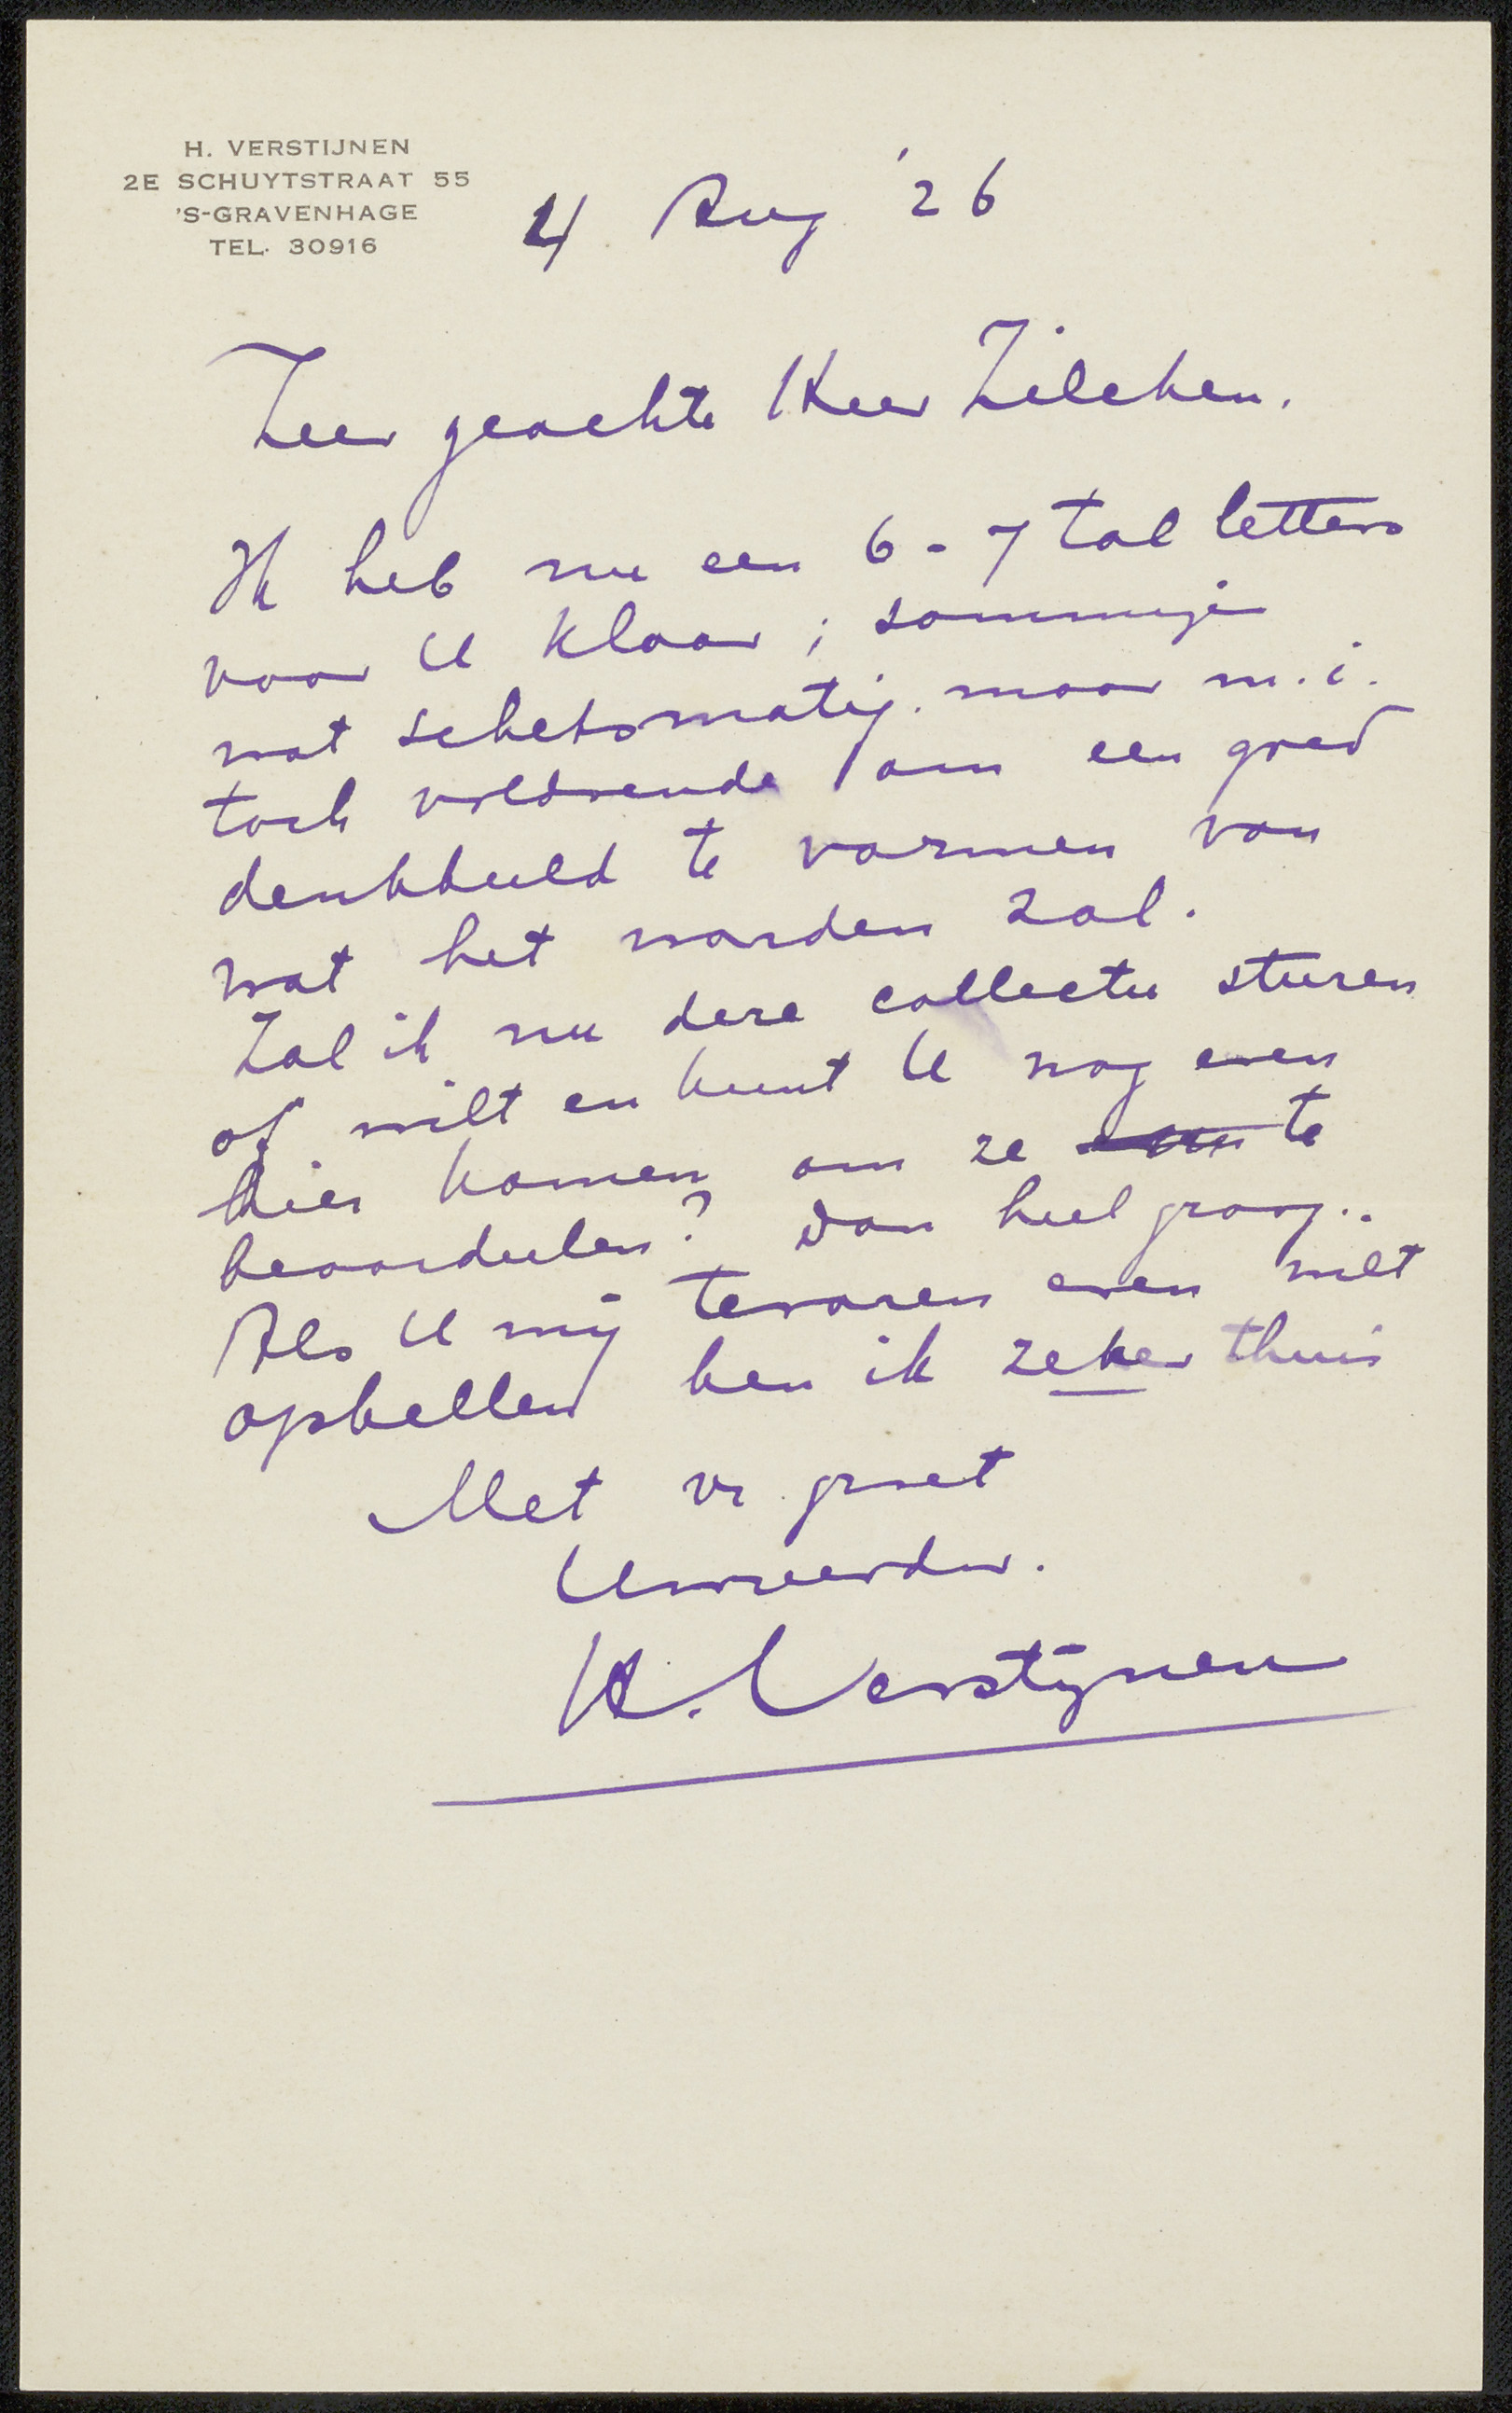 H. VERSTIJNEN
2E SCHUYTSTRAAT 55
'S-GRAVENHAGE
TEL. 30916
4 Aug '26
Zeer geachte Heer Zilcken.
Ik heb nu een 6-7 tal letters
voor U klaar; sommige
wat schetsmatig. maar m.i.
toch voldoende om een goed
denkbeeld te vormen van
wat het worden zal.
Zal ik nu deze collectie sturen
of wilt en kunt U nog even
hier komen om ze te
beoordeelen? Dan heel graag..
Als U mij tevoren even wilt
opbellen ben ik zeker thuis
Met vr groet
Uwwerder.
H. Verstijnen